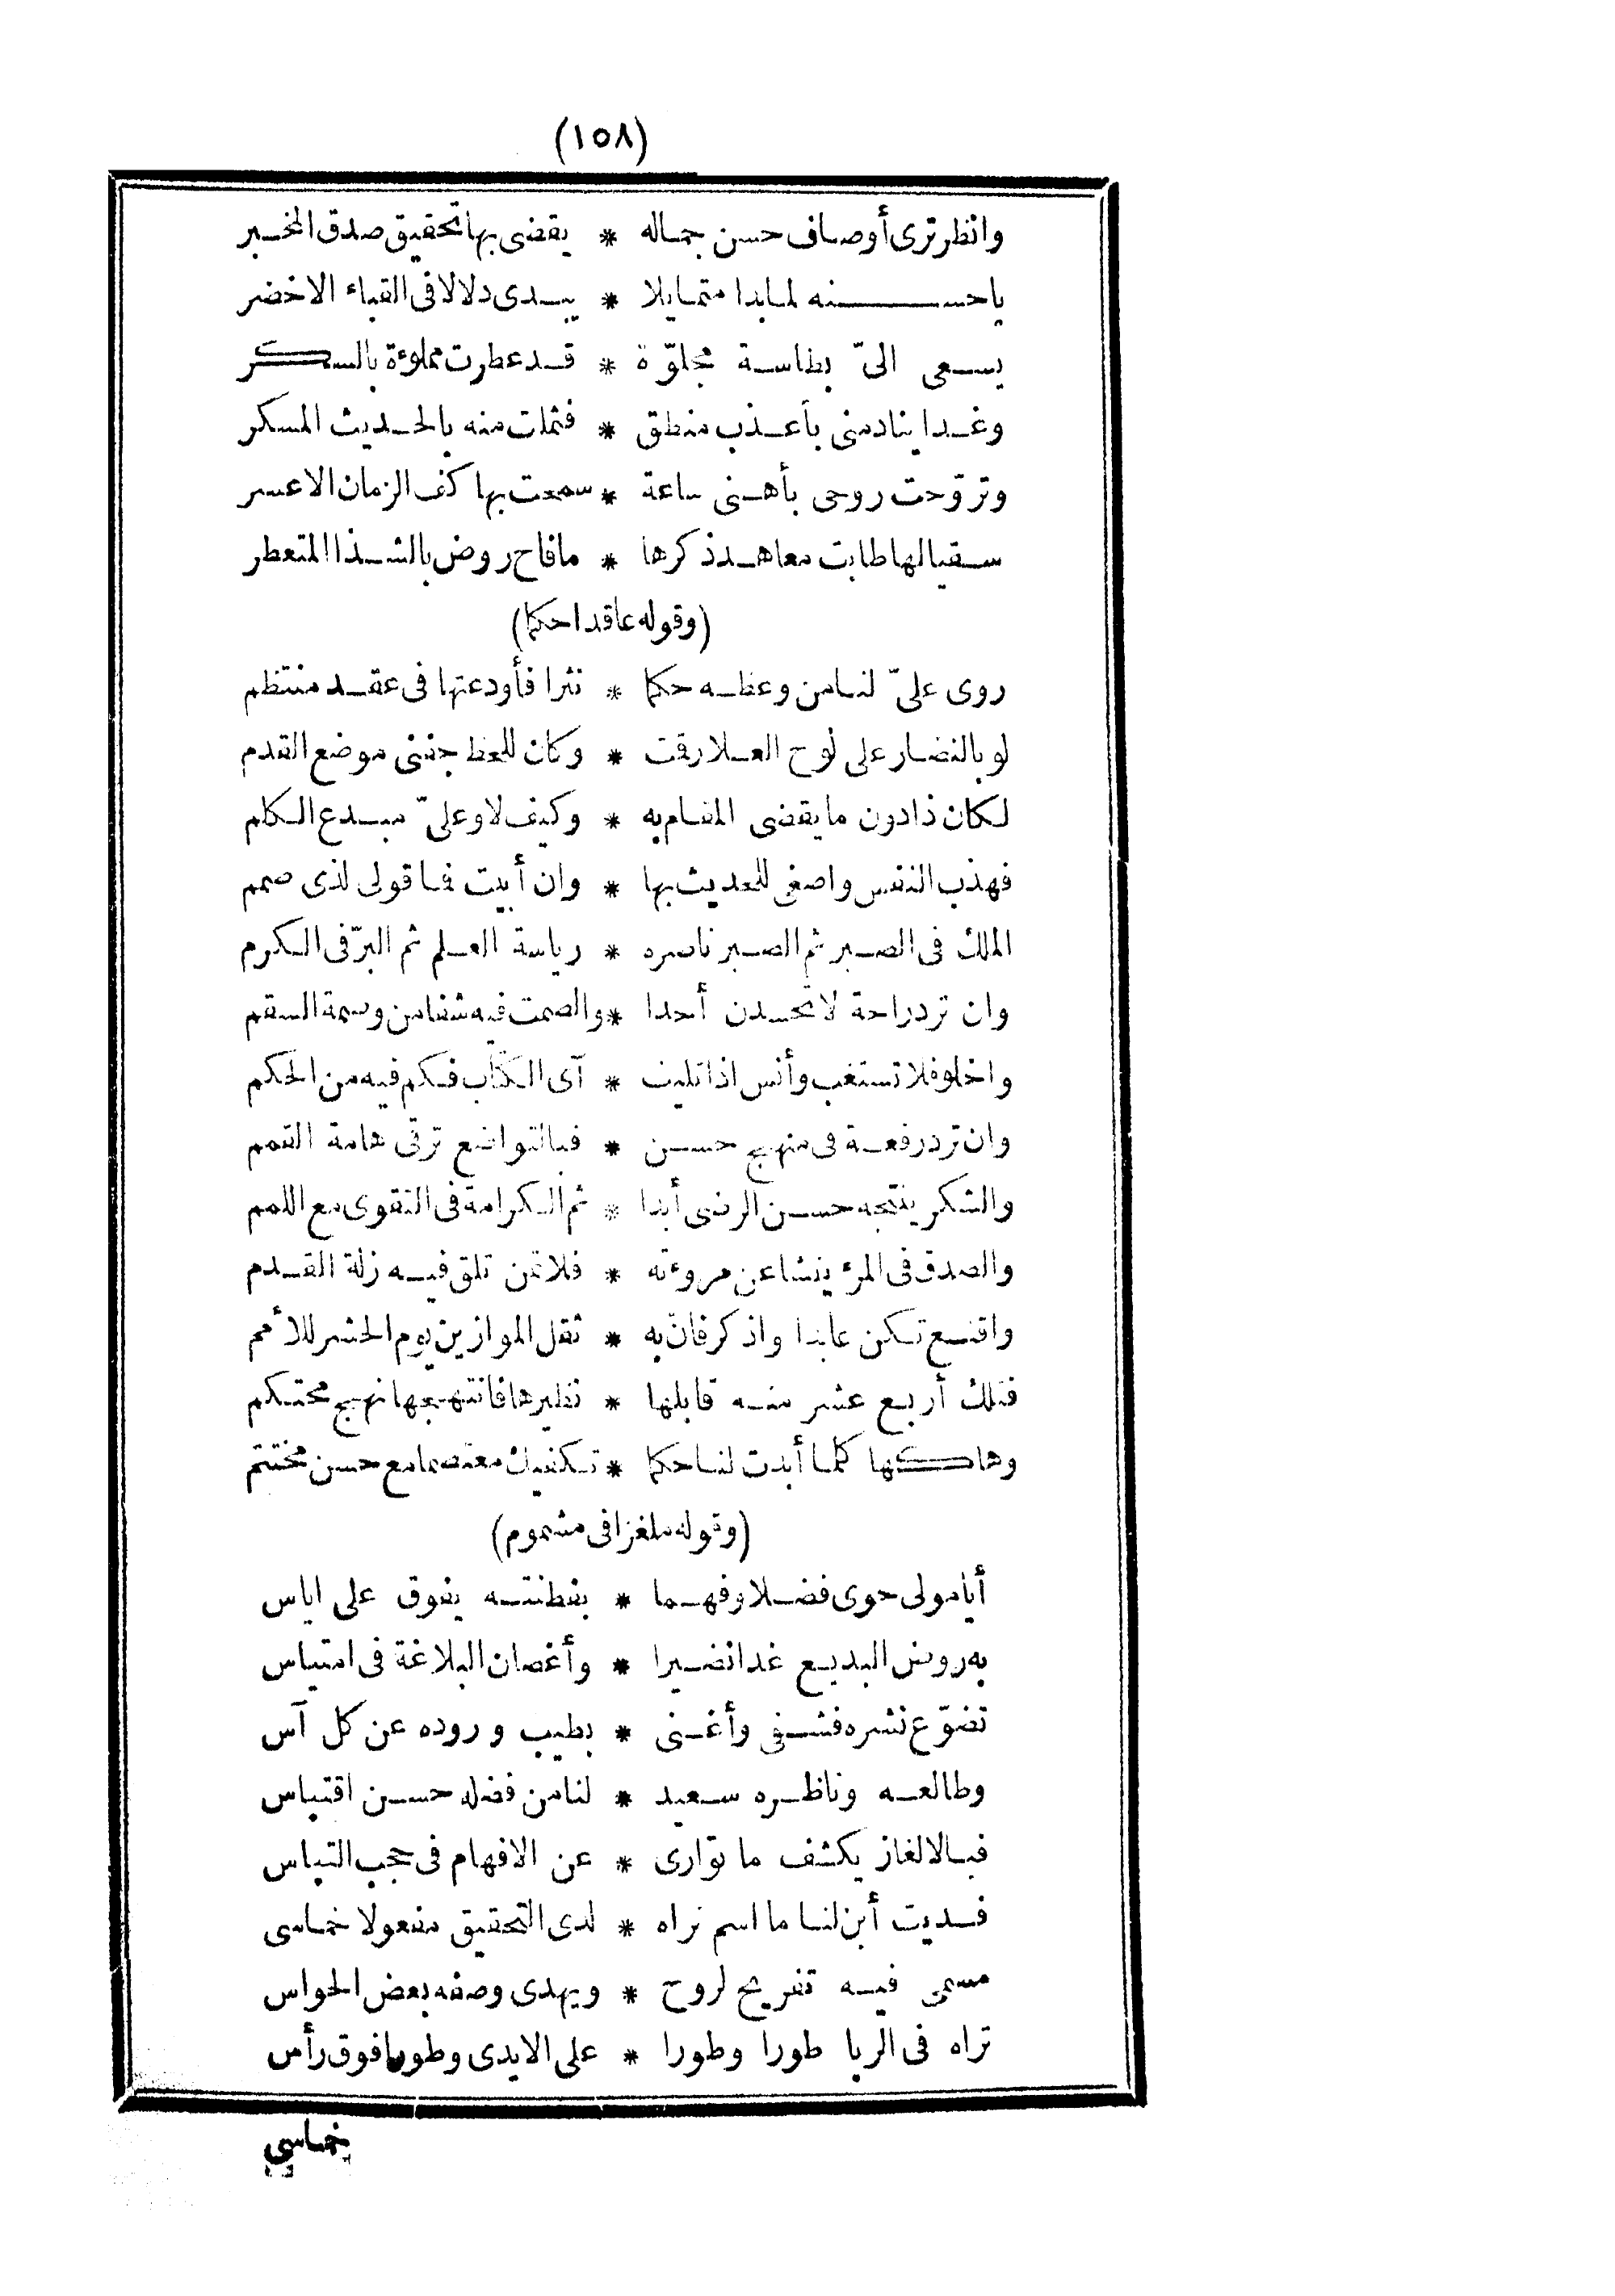 (١٥٨)
وانظر ترى أوصاف حسن جماله * يقضى بها تحقيق صدق المخبر
يا حسنه لما بدا متمايلا * يبدى دلالا فى القباء الاخضر
يسعى الىّ بطاسة مجلوّة * قد عطرت مملوءة بالسكر
وغدا ينادمنى بأعذب منطق * فثملت منه بالحديث المسكر
وتروّحت روحى بأهنى ساعة * سمحت بها كف الزمان الاعسر
سقيا لها طابت معاهد ذكرها * ما فاح روض بالشذا المتعطر
(وقوله عاقدا حكما)
روى علىّ لنا من وعظه حكما * نثرا فأودعتها فى عقد منتظم
لو بالنضار على لوح العلا رقت * وكان للحظ جفنى موضع القدم
لكان ذا دون ما يقضى المقام به * وكيف لا وعلىّ مبدع الكلم
فهذب النفس واصغى للحديث بها * وان أبيت فما قولى لذى صمم
الملك فى الصبر ثم الصبر ناصره * رياسة العلم ثم البرّ فى الكرم
وان ترد راحة لا تحسدن أحدا * والصمت فيه شفا من وصمة السقم
واخلو فلا تستغب وأنس اذا تليت * آى الكتاب فكم فيه من الحكم
وان ترد رفعة فى منهج حسن * فبالتواضع ترقى هامة القمم
والشكر ينتجه حسن الرضى أبدا * ثم الكرامة فى التقوى مع اللمم
والصدق فى المرء ينشا عن مروءته * فلا تمن تلق فيه زلة القدم
واقنع تكن عابدا واذكر فانّ به * ثقل الموازين يوم الحشر للأمم
فتلك أربع عشر منه قابلها * نظيرها فانتهجها نهج محتكم
وهاكها كلما أبدت لنا حكما * تكفيك معتصما مع حسن مختتم
(وقوله ملغزا فى مشموم)
أيا مولى حوى فضلا وفهما * بفطنته يفوق على اياس
به روض البديع غدا نضيرا * وأغصان البلاغة فى امتياس
تضوّع نشره فشفى وأغنى * بطيب وروده عن كل آس
وطالعه وناظره سعيد * لنا من فضله حسن اقتباس
فبالالغاز يكشف ما توارى * عن الافهام فى حجب التباس
فديت أبن لنا ما اسم نراه * لدى التحقيق مفعولا خماسى
مسمى فيه تفريح لروح * ويهدى وصفه بعض الحواس
تراه فى الربا طورا وطورا * على الايدى وطورا فوق رأس
خماسى